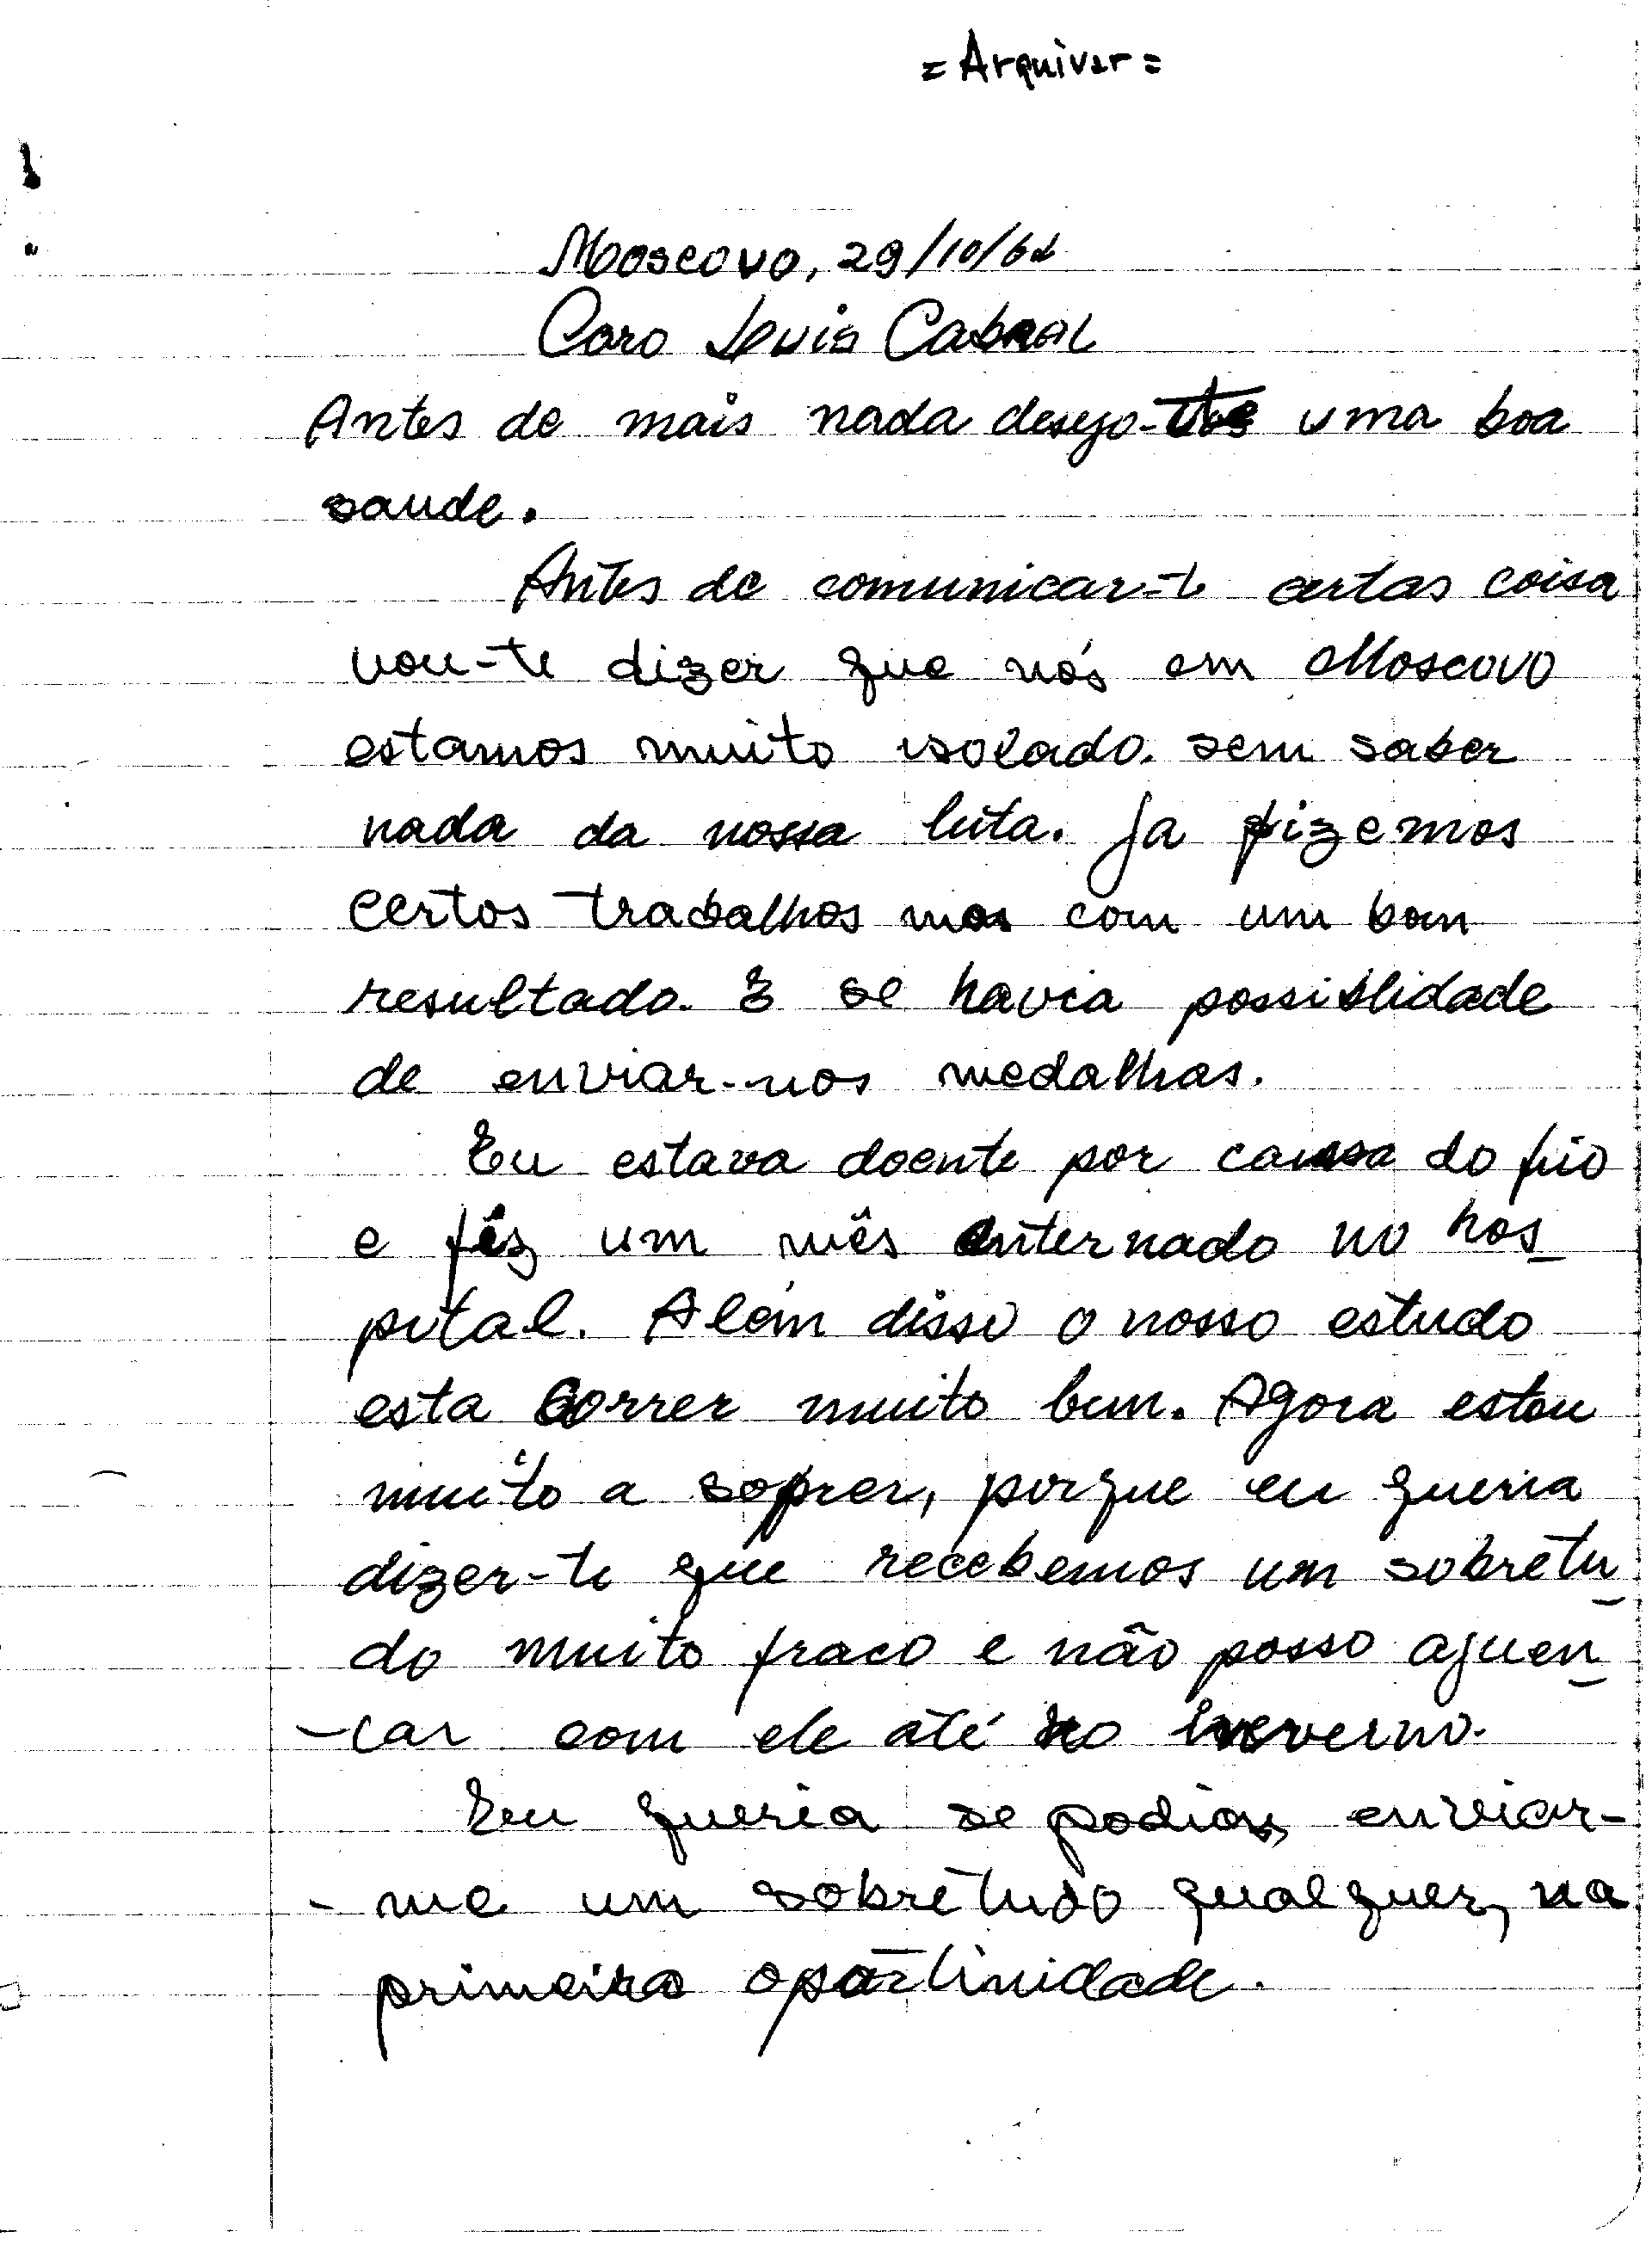 = Arquivar =
Moscovo, 29/10/62
Caro Luis Cabral
Antes de mais nada desejo-te uma boa
saude.
Antes de comunicar-te certas coisa
vou-te dizer que nós em Moscovo
estamos muito isolado. sem saber
nada da nossa luta. Ja fizemos
certos trabalhos mas com um bom
resultado. E se havia possiblidade
de enviar-nos medalhas.
Eu estava doente por causa do frio
e fêz um mês internado no hos
pital. Alem disso o nosso estudo
esta correr muito bem. Agora estou
muito a sofrer, porque eu queria
dizer-te que recebemos um sobretu
do muito fraco e não posso aguen
-tar com ele até no inverno.
Eu queria se podias enviar-
- me um sobretudo qualquer, na
primeira oportinidade.